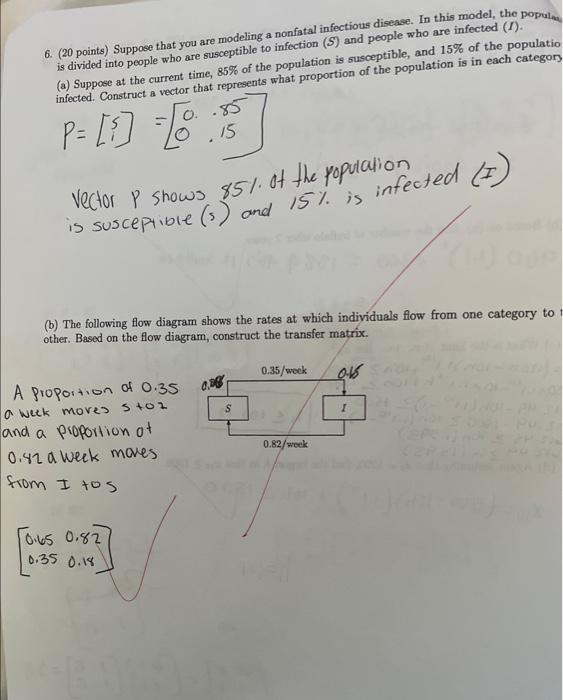 6. (20 points) Suppose that you are modeling a nonfatal infectious disease. In this model, the
is divided into people who are susceptible to infection (S) and people who are infected (I).
(a) Suppose at the current time, 85% of the population is susceptible, and 15% of the populatio
infected. Construct a vector that represents what proportion of the population is in each category
P = [S I] = [0. .85
0 .15]
Vector P shows 85% of the population
is susceptible (s) and 15% is infected (I)
(b) The following flow diagram shows the rates at which individuals flow from one category to
other. Based on the flow diagram, construct the transfer matrix.
0.35/week
S
I
0.82/week
A proportion of 0.35
a week moves S to
and a proportion of
a week moves
from I to S
[0.65 0.82
0.35 0.18]